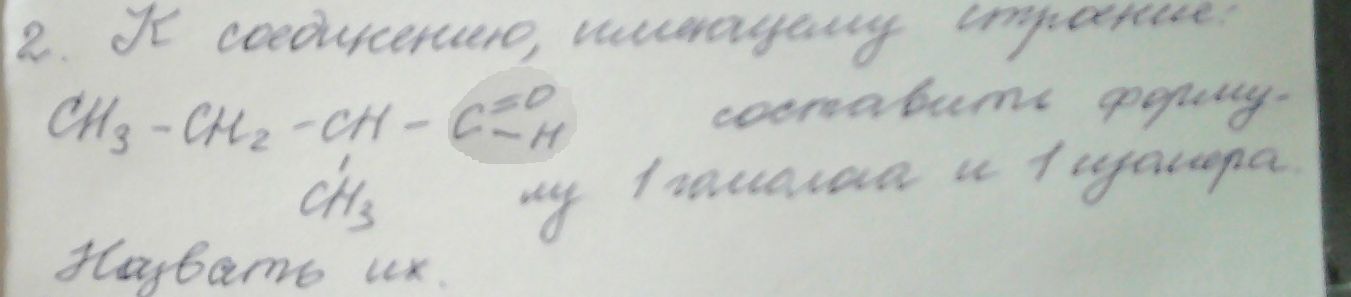 2. К соединению, имеющему строение:
CH₃ - CH₂ - CH - C =O -H составить форму-
CH₃ лу 1 гомолога и 1 изомера.
Назвать их.